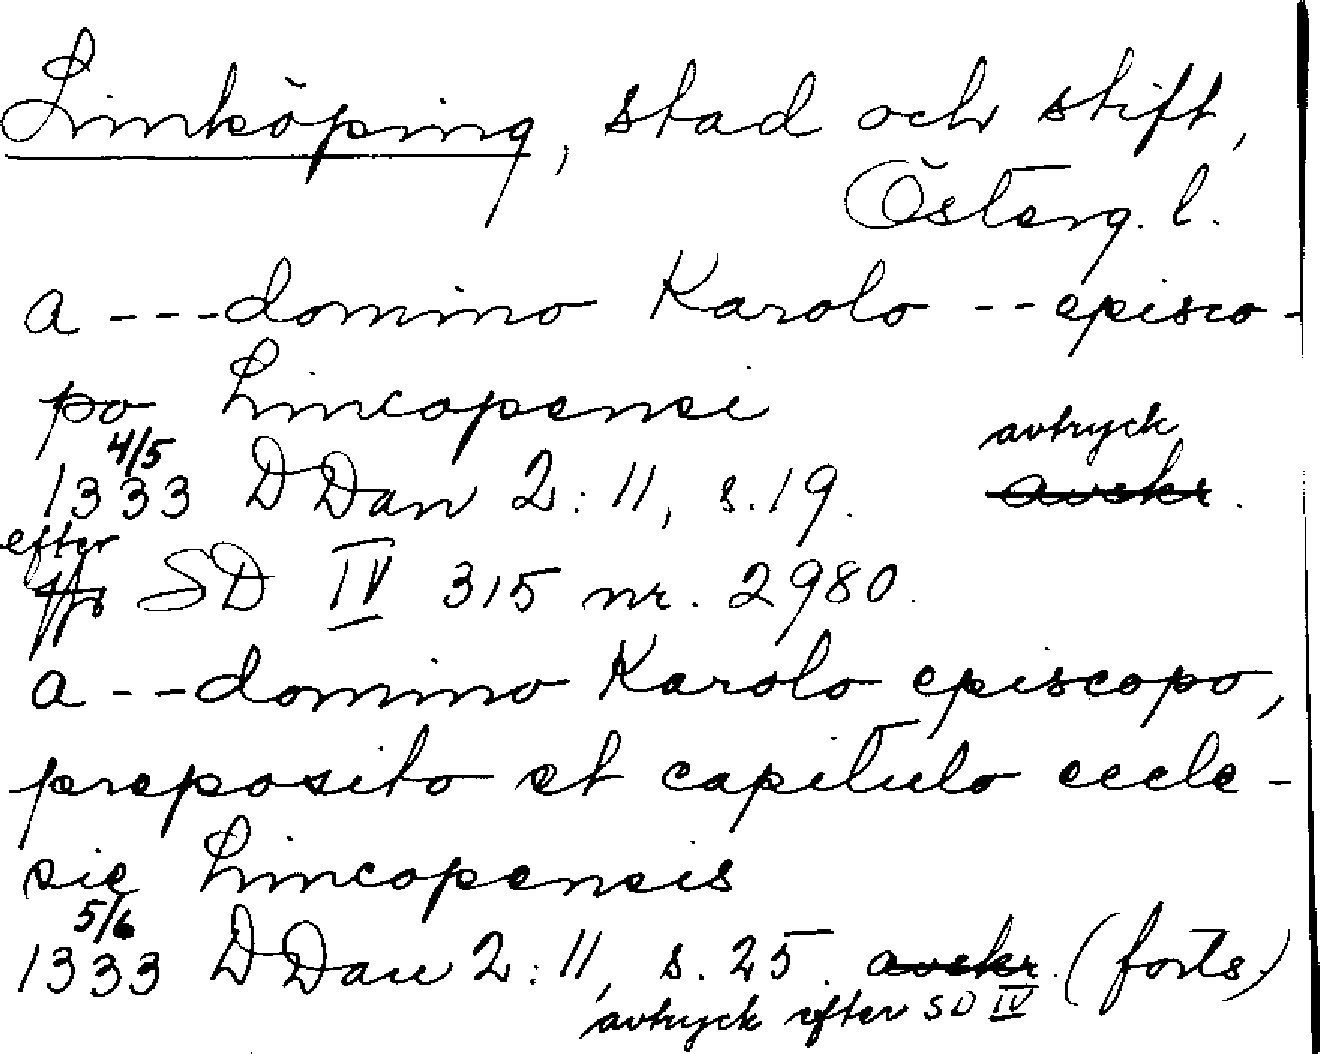 Linköping, stad och stift,
Österg. l.
a --- domino Karolo -- episco-
po Lincopensi
4/5 avtryck
1333 DDan 2:11, s. 19. avskr.
efter
SD IV 315 nr. 2980.
a -- domino Karolo episcopo,
preposito et capitulo eccle-
sie Lincopensis
5/6
1333 DDan 2:11, s. 25. avskr. (forts)
avtryck efter SD IV